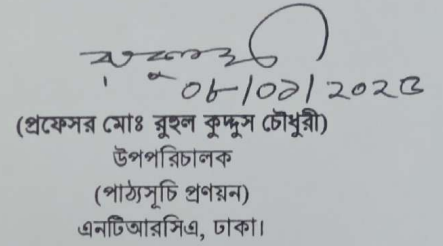 ০৮/০১/২০২৩
(প্রফেসর মোঃ রুহুল কুদ্দুস চৌধুরী)
উপপরিচালক
(পাঠ্যসূচি প্রণয়ন)
এনটিআরসিএ, ঢাকা।